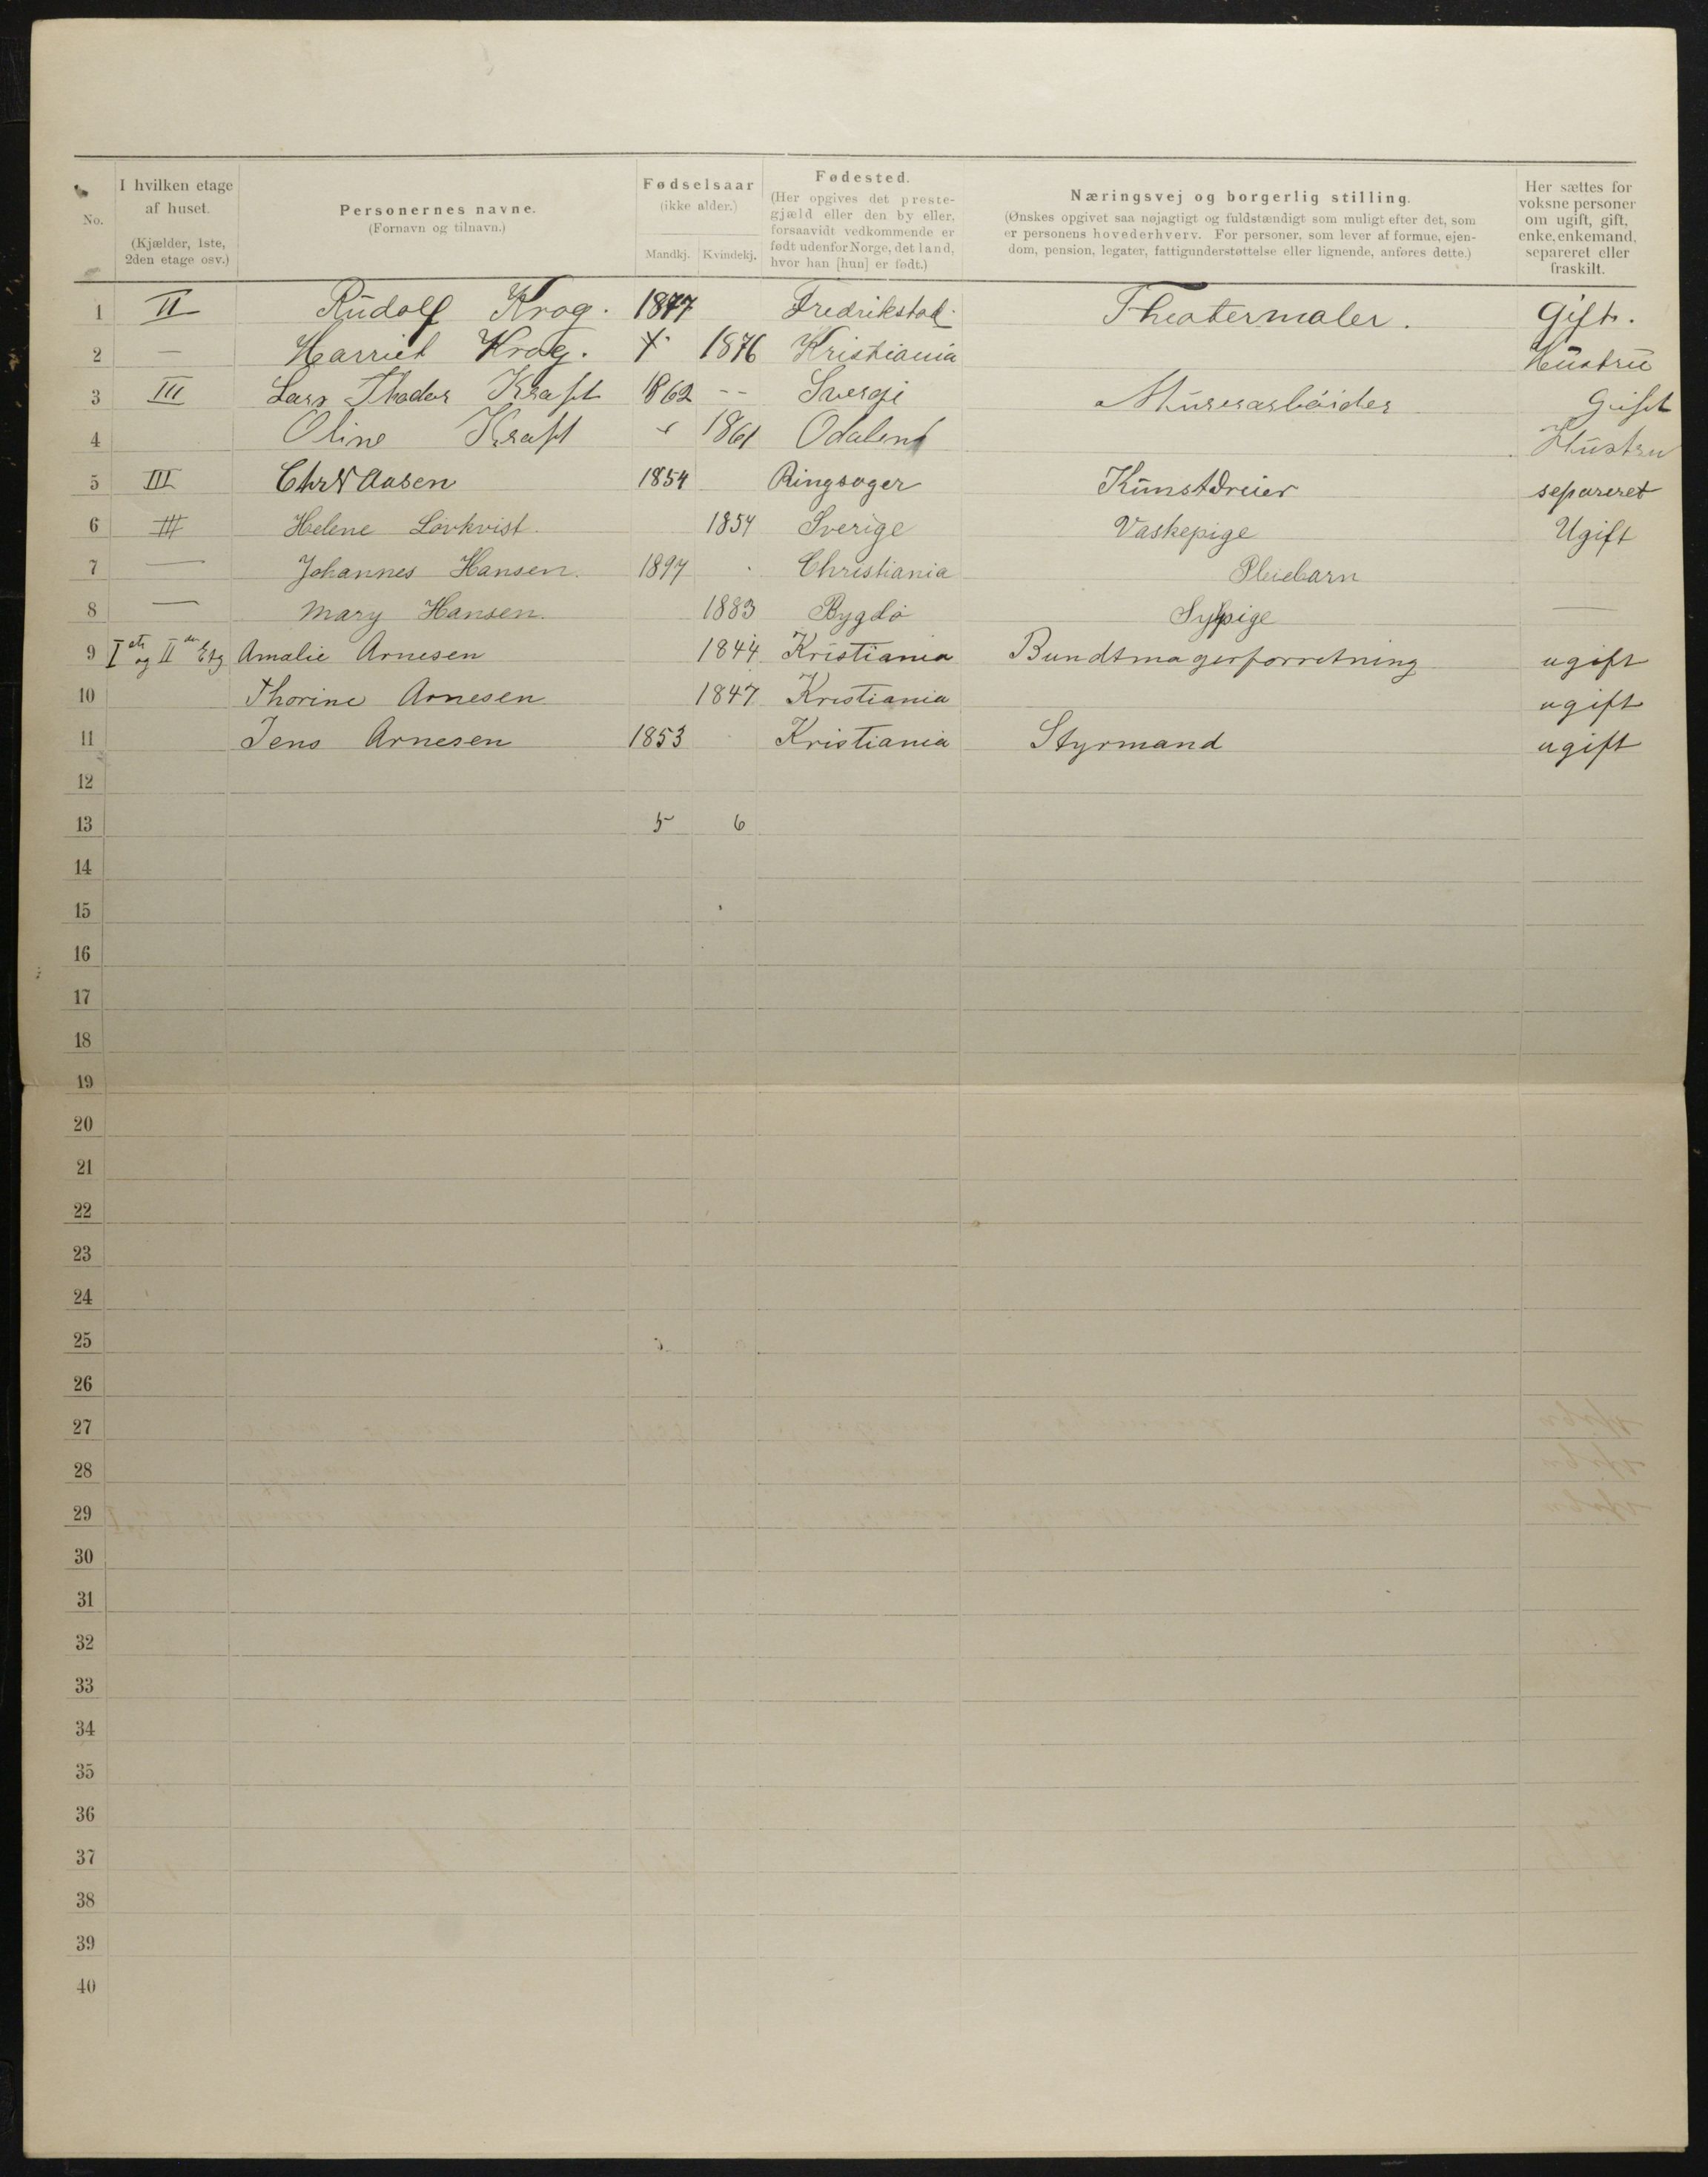 No.
I hvilken etage af huset.
(Kjælder, 1ste, 2den etage osv.)
Personernes navne.
(Fornavn og tilnavn.)
Fødselsaar
(ikke alder.)
Mandkj. Kvindekj.
Fødested.
(Her opgives det preste-
gjæld eller den by eller,
forsaavidt vedkommende er
født udenfor Norge, det land,
hvor han [hun] er født.)
Næringsvej og borgerlig stilling.
(Ønskes opgivet saa nøjagtigt og fuldstændigt som muligt efter det, som
er personens hovederhverv. For personer, som lever af formue, ejen-
dom, pension, legater, fattigunderstøttelse eller lignende, anføres dette.)
Her sættes for
voksne personer
om ugift, gift,
enke, enkemand,
separeret eller
fraskilt.
1 II Rudolf Krog. 1877 Fredrikstad. Theatermaler. Gift.
2 — Harriet Krog. 1876 Kristiania Hustru
3 III Lars Thodor Kraft 1862 -- Svergi Murerarbóider Gift
4 Oline Kraft 1861 Odalen Hustru
5 III Chr Aasen 1854 Ringsager Kunstdreier separeret
6 III Helene Lövkvist. 1854 Sverige Vaskepige Ugift
7 — Johannes Hansen. 1897 Christiania Pleiebarn
8 — Mary Hansen. 1883 Bygdö Sypige —
9 I ste og II den Etg Amalie Arnesen 1844 Kristiania Bundtmagerforretning ugift
10 Thorine Arnesen 1847 Kristiania ugift
11 Jens Arnesen 1853 Kristiania Styrmand ugift
12
13 5 6
14
15
16
17
18
19
20
21
22
23
24
25
26
27
28
29
30
31
32
33
34
35
36
37
38
39
40